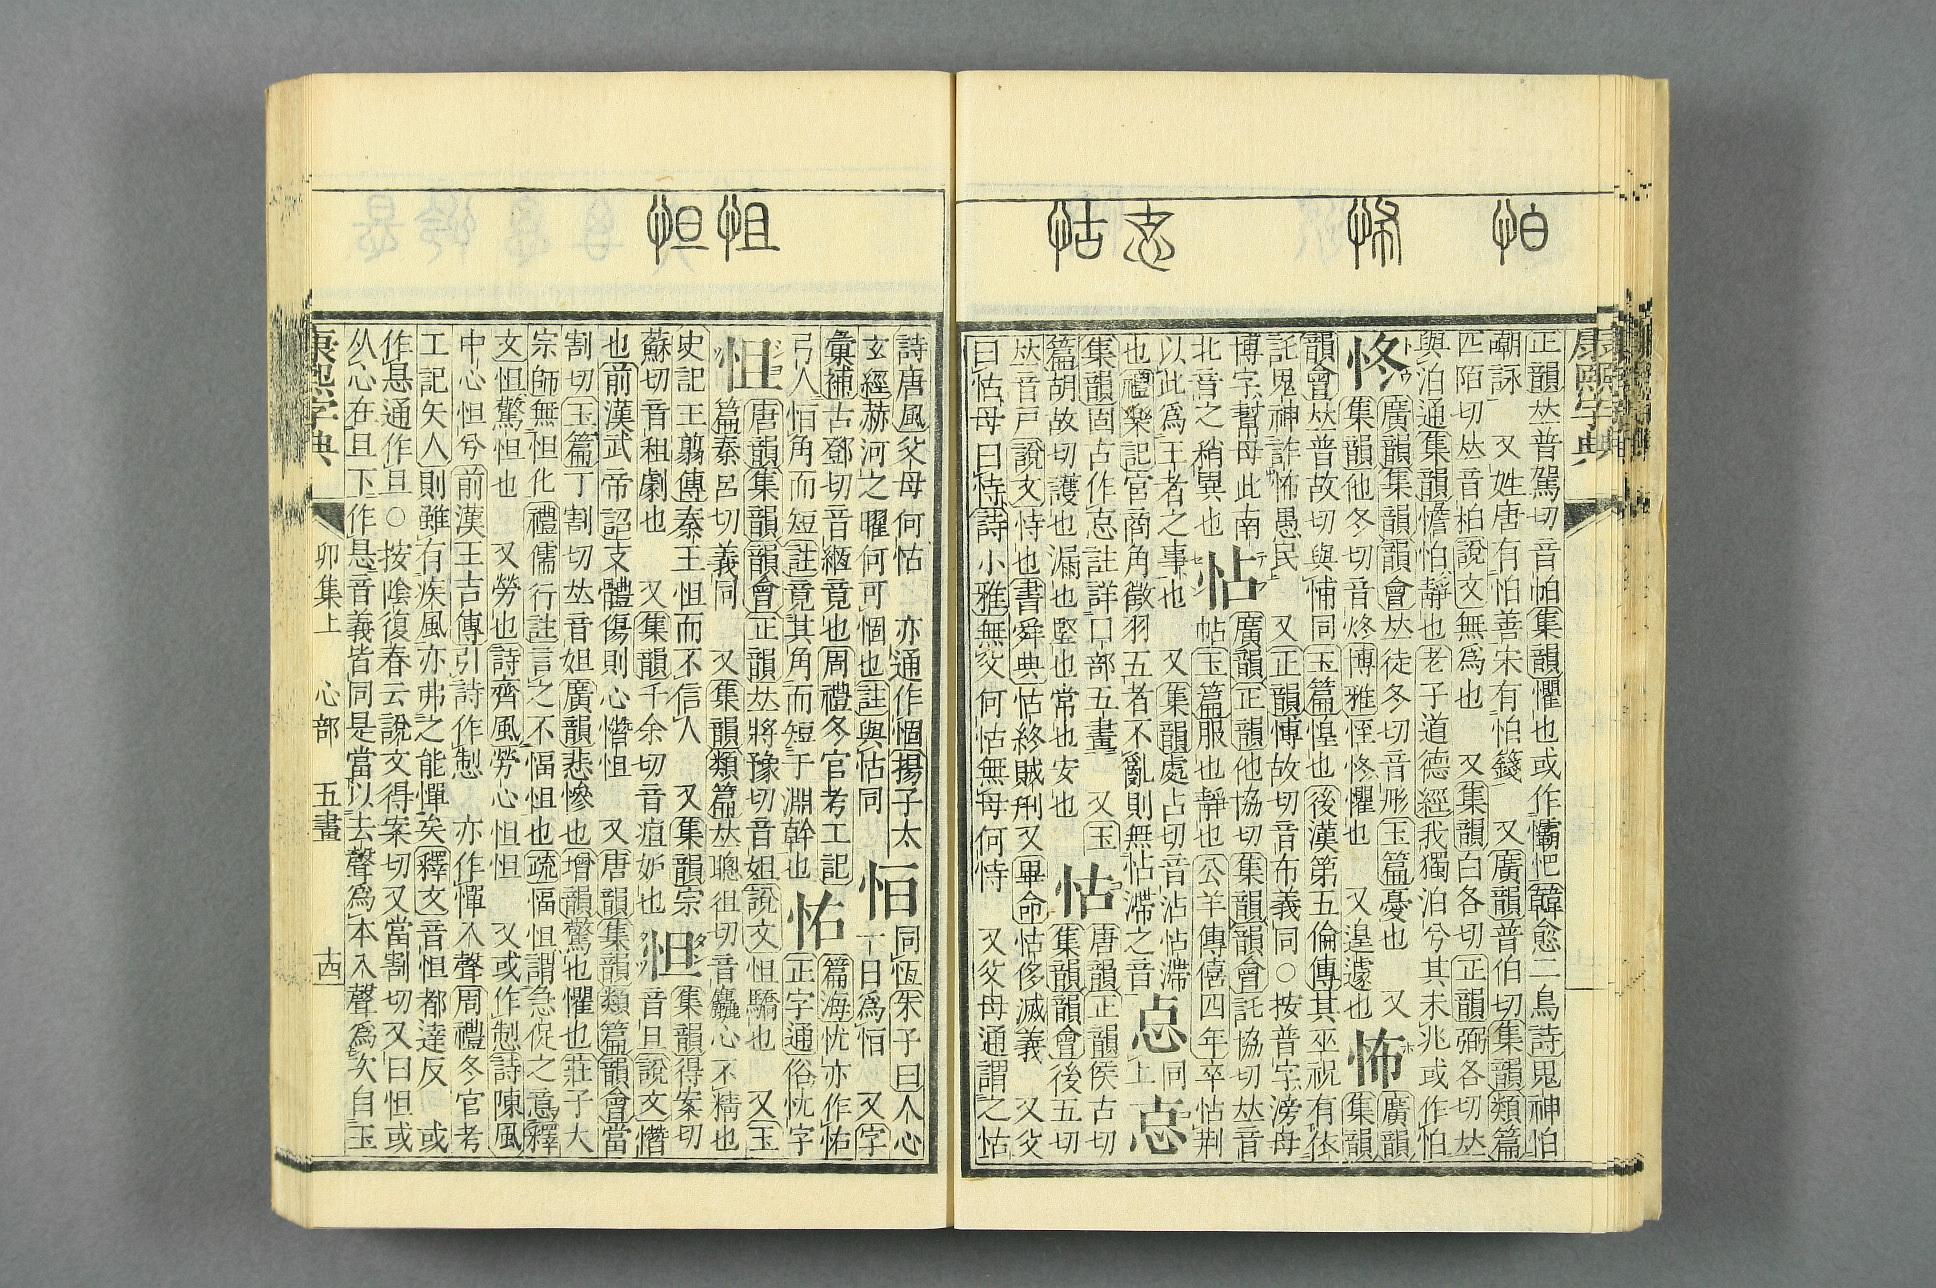 怕
㤏
志
怙
正韻𠀤普駕切音帕集韻懼也或作𢥉㞎韓愈二鳥詩鬼神怕
嘲詠 又姓唐有怕善宋有怕錢 又廣韻普伯切集韻類篇
匹陌切𠀤音柏說文無爲也 又集韻白各切正韻弼各切𠀤
與泊通集韻憺怕靜也老子道德經我獨泊兮其未兆或作怕
㤏
廣韻集韻韻會𠀤徒冬切音彤玉篇憂也 又
集韻他冬切音炵博雅𢙺㤏懼也 又遑遽也
怖
廣韻
集韻
韻會𠀤普故切與悑同玉篇惶也後漢第五倫傳其巫祝有依
託鬼神詐怖愚民 又正韻博故切音布義同○按普字滂母
博字幫母此南
北音之稍異也
怗
廣韻正韻他協切集韻韻會託協切𠀤音
帖玉篇服也靜也公羊傳僖四年卒怗荆
以此爲王者之事也 又集韻處占切音沾怗滯
也禮樂記宮商角徵羽五者不亂則無怗滯之音
㤐
同
上
㤐
集韻固古作㤐註詳口部五畫 又玉
篇胡故切護也漏也堅也常也安也
怙
唐韻正韻侯古切
集韻韻會後五切
𠀤音戸說文恃也書舜典怙終賊刑又畢命怙侈滅義 又父
曰怙母曰恃詩小雅無父何怙無母何恃 又父母通謂之怙
怚
怛
詩唐風父母何怙 亦通作㥬揚子太
玄經赫河之曜何可㥬也註與怙同
㤆
同恆朱子曰人心
一日爲㤆 又字
彙補古鄧切音緪竟也周禮冬官考工記
弓人㤆角而短註竟其角而短于淵幹也
㤑
篇海忧亦作㤑
正字通俗忧字
怚
唐韻集韻韻會正韻𠀤將豫切音姐說文怚驕也 又玉
篇秦呂切義同 又集韻類篇𠀤聰徂切音麤心不精也
史記王翦傳秦王怚而不信人 又集韻宗
蘇切音租劇也 又集韻千余切音疽妒也
怛
集韻得案切
音旦說文憯
也前漢武帝詔支體傷則心憯怛 又唐韻集韻類篇韻會當
割切玉篇丁割切𠀤音妲廣韻悲慘也增韻驚也懼也莊子大
宗師無怛化禮儒行註言之不愊怛也疏愊怛謂急促之意釋
文怛驚怛也 又勞也詩齊風勞心怛怛 又或作㓡詩陳風
中心怛兮前漢王吉傳引詩作㓡 亦作憚入聲周禮冬官考
工記矢人則雖有疾風亦弗之能憚矣釋文音怛都達反 或
作悬通作旦○按陰復春云說文得案切又當割切又曰怛或
从心在旦下作悬音義皆同是當以去聲爲本入聲爲次自玉
康熙字典
卯集上 心部 五畫
十四